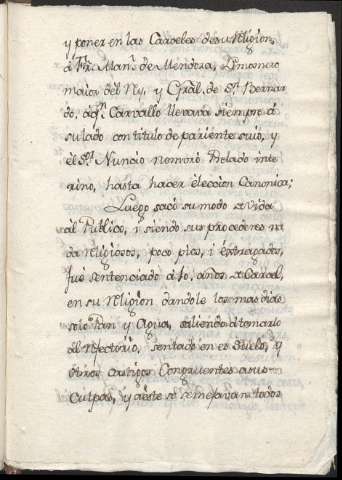 y poner en las Carceles de su Religion,
á Fr. Man.l de Mendoza, Limosnero
maior del Rey, y Gral. de S.n Bernar
do, á q.n Carvallo llevava siempre á
su lado con titulo de pariente suio, y
el S.r Nuncio nombró Prelado inte
rino, hasta hacer eleccion Canonica;
Luego sacó su modo de vida
al Publico, i siendo sus procederes na
da religiosos, poco pios, i estragados,
fue sentenciado á 10. años de Carcel,
en su Religion dandole los mas dias
solo Pan y Agua, saliendo á tomarlo
al Refectorio, sentado en el suelo, y
otros castigos Congruentes a sus
Culpas, y á este se semejavan todos